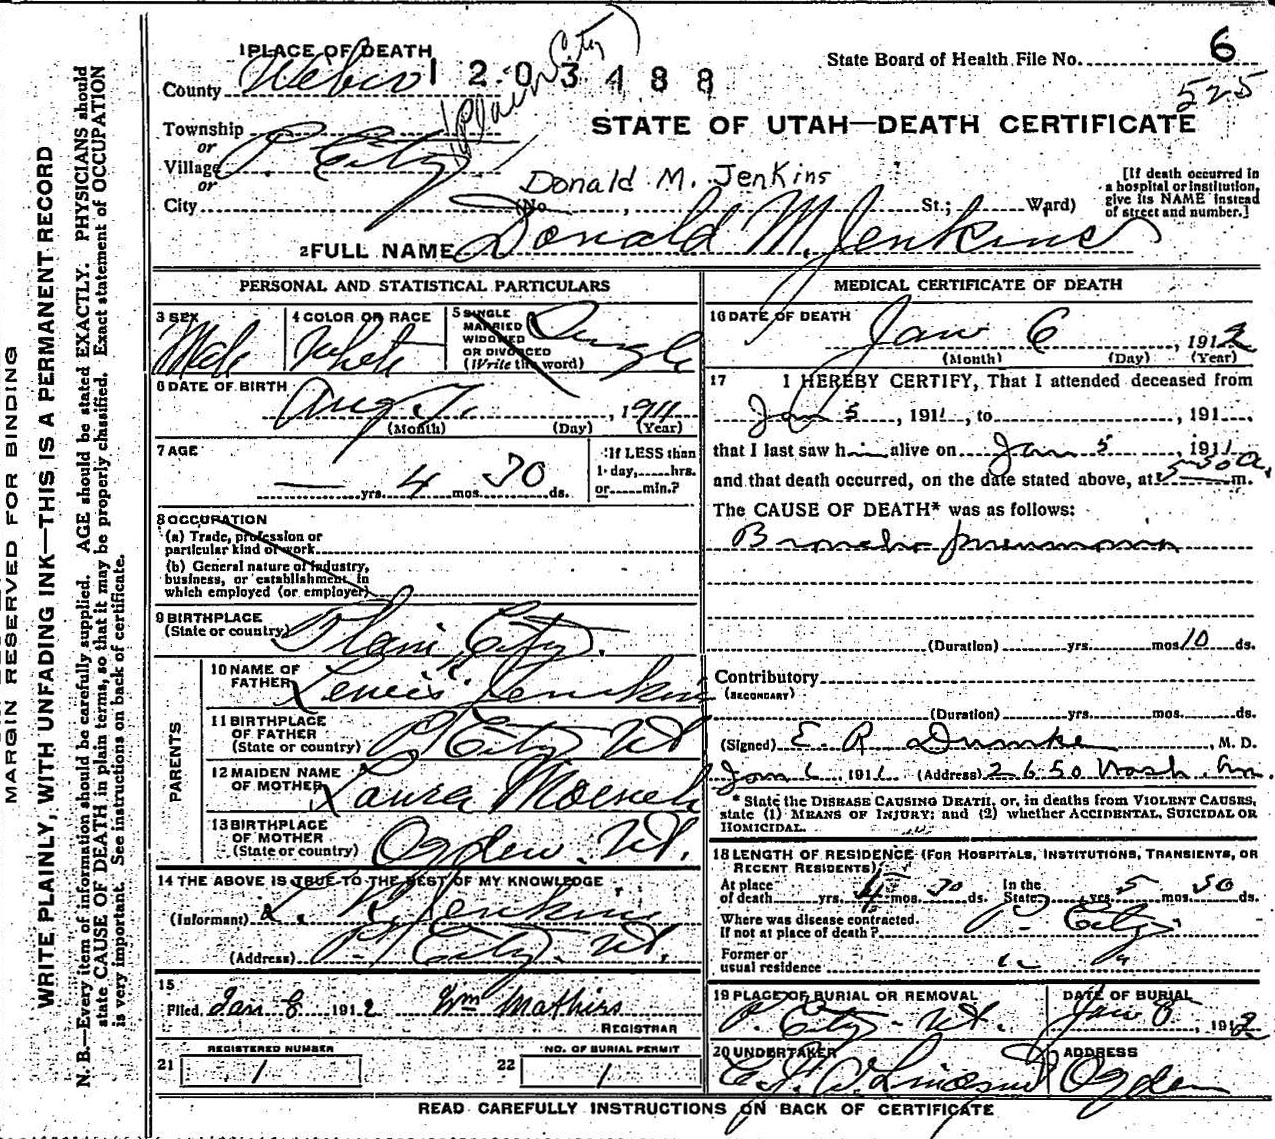 MARGIN RESERVED FOR BINDING
WRITE PLAINLY, WITH UNFADING INK—THIS IS A PERMANENT RECORD
N. B.—Every item of information should be carefully supplied. AGE should be stated EXACTLY. PHYSICIANS should
state CAUSE OF DEATH in plain terms, so that it may be properly classified. Exact statement of OCCUPATION
is very important. See instructions on back of certificate.
1 PLACE OF DEATH
County Weber
1203488
State Board of Health File No. 6
525
STATE OF UTAH—DEATH CERTIFICATE
Township
or
Village P. City (Plain City)
or
City (No. , St.; Ward)
Donald M. Jenkins
[If death occurred in
a hospital or institution,
give its NAME instead
of street and number.]
2 FULL NAME Donald M. Jenkins
PERSONAL AND STATISTICAL PARTICULARS
3 SEX Male
4 COLOR OR RACE White
5 SINGLE
MARRIED
WIDOWED
OR DIVORCED
(Write the word)
Single
6 DATE OF BIRTH
Aug 7, 1911
(Month) (Day) (Year)
7 AGE
— yrs. 4 mos. 30 ds.
If LESS than
1 day, hrs.
or min.?
8 OCCUPATION
(a) Trade, profession or
particular kind of work
(b) General nature of industry,
business, or establishment in
which employed (or employer)
9 BIRTHPLACE
(State or country) Plain City.
PARENTS
10 NAME OF
FATHER Lewis R. Jenkins
11 BIRTHPLACE
OF FATHER
(State or country) P. City Ut
12 MAIDEN NAME
OF MOTHER Laura
13 BIRTHPLACE
OF MOTHER
(State or country) Ogden Ut.
14 THE ABOVE IS TRUE TO THE BEST OF MY KNOWLEDGE
(Informant) L. R. Jenkins
(Address) P. City Ut.
15
Filed Jan 8 1912 Wm Mathies
REGISTRAR
21 REGISTERED NUMBER
1
22 NO. OF BURIAL PERMIT
1
MEDICAL CERTIFICATE OF DEATH
16 DATE OF DEATH
Jan 6, 1912
(Month) (Day) (Year)
17 I HEREBY CERTIFY, That I attended deceased from
Jan 5, 1911, to , 191
that I last saw h im alive on Jan 5, 1911
and that death occurred, on the date stated above, at 5-30 a. m.
The CAUSE OF DEATH* was as follows:
Broncho pneumonia
(Duration) yrs. mos. 10 ds.
Contributory
(SECONDARY)
(Duration) yrs. mos. ds.
(Signed) E. R. Dumke, M. D.
Jan 6 1911 (Address) 2650 Wash. Av.
* State the DISEASE CAUSING DEATH, or, in deaths from VIOLENT CAUSES,
state (1) MEANS OF INJURY; and (2) whether ACCIDENTAL, SUICIDAL OR
HOMICIDAL.
18 LENGTH OF RESIDENCE (FOR HOSPITALS, INSTITUTIONS, TRANSIENTS, OR
RECENT RESIDENTS)
At place
of death yrs. mos. 30 ds. In the
State yrs. 5 mos. 30 ds.
Where was disease contracted.
If not at place of death? P. City
Former or
usual residence
19 PLACE OF BURIAL OR REMOVAL
P. City Ut.
DATE OF BURIAL
Jan 8, 1912
20 UNDERTAKER
ADDRESS
Ogden
READ CAREFULLY INSTRUCTIONS ON BACK OF CERTIFICATE